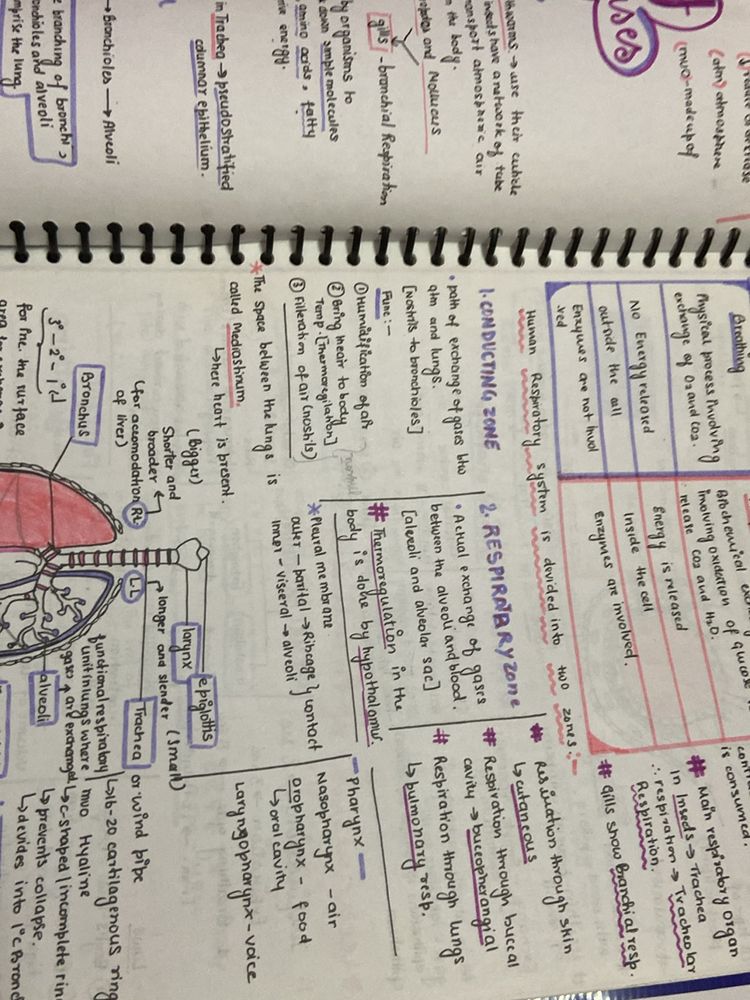 ises
(atm) atmosphere
(muo)-madeup of
thworms → use their cuticle
insects have a network of tube
ansport atmospheric air
the body.
and Molluscus
gills - bronchial Respiration
by organisms to
down simple molecules
amino acids, fatty
energy.
in Trachea → pseudostratified
columnar epithelium.
→ Bronchioles → Alveoli
branching of bronchi,
onchioles and alveoli
mprise the lung
Breathing
Physical process involving
exchange of O2 and CO2.
No Energy released
outside the cell
Enzymes are not invol
ved
Biochemical
involving oxidation of glucose
release CO2 and H2O.
Energy is released
Inside the cell
Enzymes are involved.
is consumed.
# Main respiratory organ
in Insects → Trachea
∴ respiration → Tracheolar
Respiration.
# gills show Branchial resp.
Human Respiratory system is devided into two zones:-
1. CONDUCTING ZONE
• path of exchange of gases btw
atm and lungs.
[Nostrils to bronchioles]
Func:-
① Humidification of air
② Bring inair to body
Temp. [Thermoregilation]
③ Filteration of air (noshils)
* The space between the lungs is
called Mediastinum.
↳ here heart is present.
2. RESPIRATARY ZONE
• Actual exchange of gases
between the alveoli and blood.
[alveoli and alveolar sac]
# Thermoregulation in the
body is done by hypothalamus.
* Pleural membrane
outer - parital → Ribcage } contact
inner - visceral → alveoli
# through skin
↳ cutaneous
# Respiration through buccal
cavity → buccopherangial
# Respiration through lungs
↳ pulmonary resp.
- Pharynx -
Nasopharynx - air
Oropharynx - food
↳ oral cavity
Laryngopharynx - voice
epiglotis
larynx
(Bigger)
Shorter and
broader ← RL
(for accomodation
of liver)
LL
↳ longer and slender (small)
Bronchus
3° - 2° - 1°
for inc. the surface
Trachea or wind pipe
↳ 16-20 cartilagenous ring
muo Hyaline
↳ c-shaped (incomplete rin
↳ prevents collapse.
↳ devides into 1°c Bron
functional respiratory
unit in lungs where
gases are exchanged
alveoli